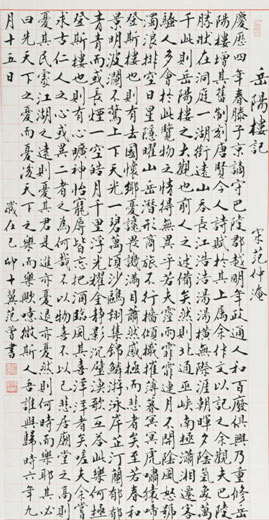 岳陽樓記
宋 范仲淹
慶歷四年春滕子京謫守巴陵郡越明年政通人和百廢俱興乃重修岳
陽樓增其舊制刻唐賢今人詩賦於其上属余作文以記之余觀夫巴陵
勝狀在洞庭一湖銜遠山吞長江浩浩湯湯橫無際涯朝暉夕陰氣象萬
千此則岳陽樓之大觀也前人之述備矣然則北通巫峽南極瀟湘遷客
騷人多會於此覽物之情得無異乎若夫霪雨霏霏連月不開陰風怒號
濁浪排空日星隱曜山岳潛形商旅不行檣傾楫摧薄暮冥冥虎嘯猿啼
登斯樓也則有去國懷鄉憂讒畏譏滿目蕭然感極而悲者矣至若春和
景明波瀾不驚上下天光一碧萬頃沙鷗翔集錦鱗游泳岸芷汀蘭郁郁
青青而或長煙一空皓月千里浮光耀金靜影沉璧漁歌互答此樂何極
登斯樓也則有心曠神怡寵辱皆忘把酒臨風其喜洋洋者矣嗟夫余嘗
求古仁人之心或異二者之為何哉不以物喜不以己悲居廟堂之高則
憂其民處江湖之遠則憂其君是進亦憂退亦憂然則何時而樂耶其必
曰先天下之憂而憂後天下之樂而樂歟噫微斯人吾誰與歸時六年九
月十五日 歲在己卯十翼范曾書